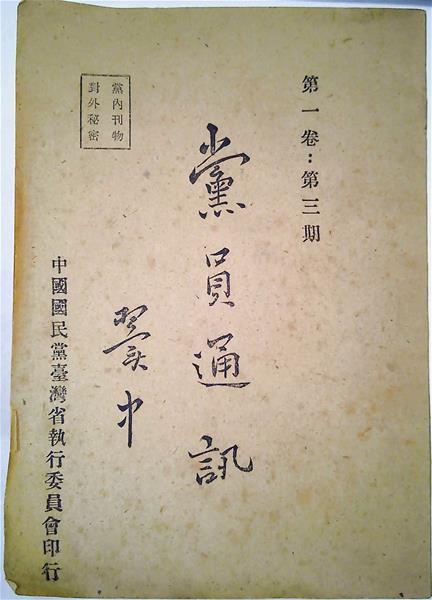 第一卷：第三期
黨員通訊
黨內刊物
對外秘密
翼中
中國國民黨臺灣省執行委員會印行